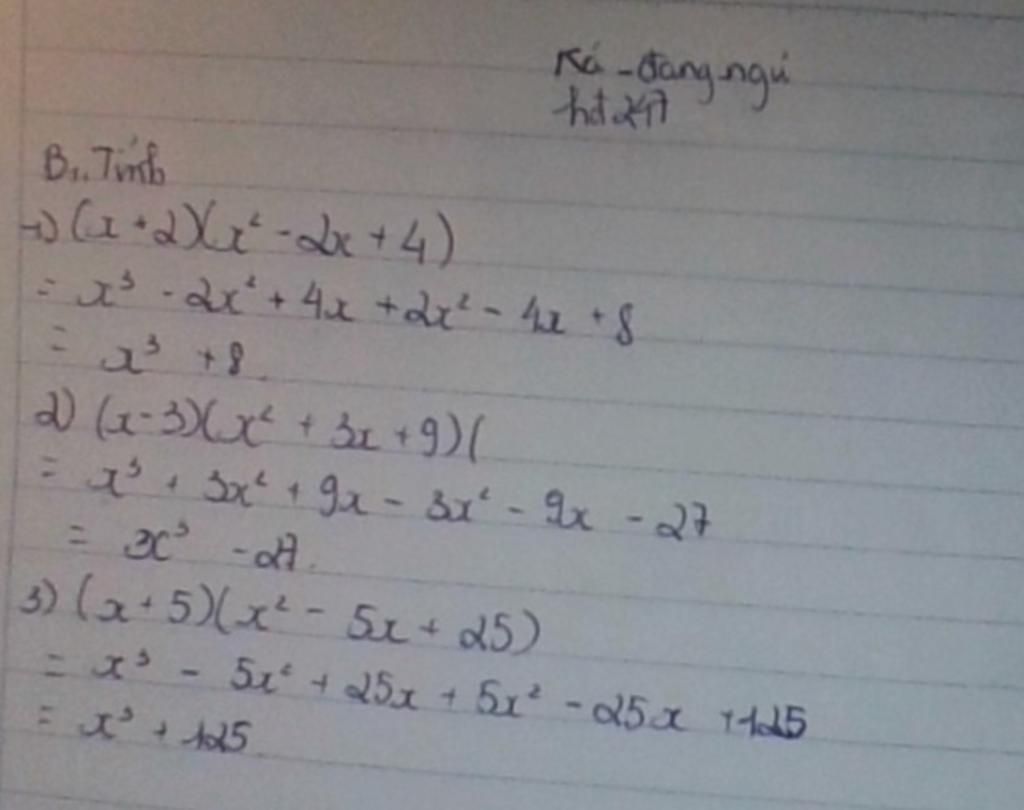 Ká - đang ngủ
hđ 247
B1. Tính
1) (x + 2)(x² - 2x + 4)
= x³ - 2x² + 4x + 2x² - 4x + 8
= x³ + 8.
2) (x - 3)(x² + 3x + 9)(
= x³ + 3x² + 9x - 3x² - 9x - 27
= x³ - 27.
3) (x + 5)(x² - 5x + 25)
= x³ - 5x² + 25x + 5x² - 25x + 125
= x³ + 125